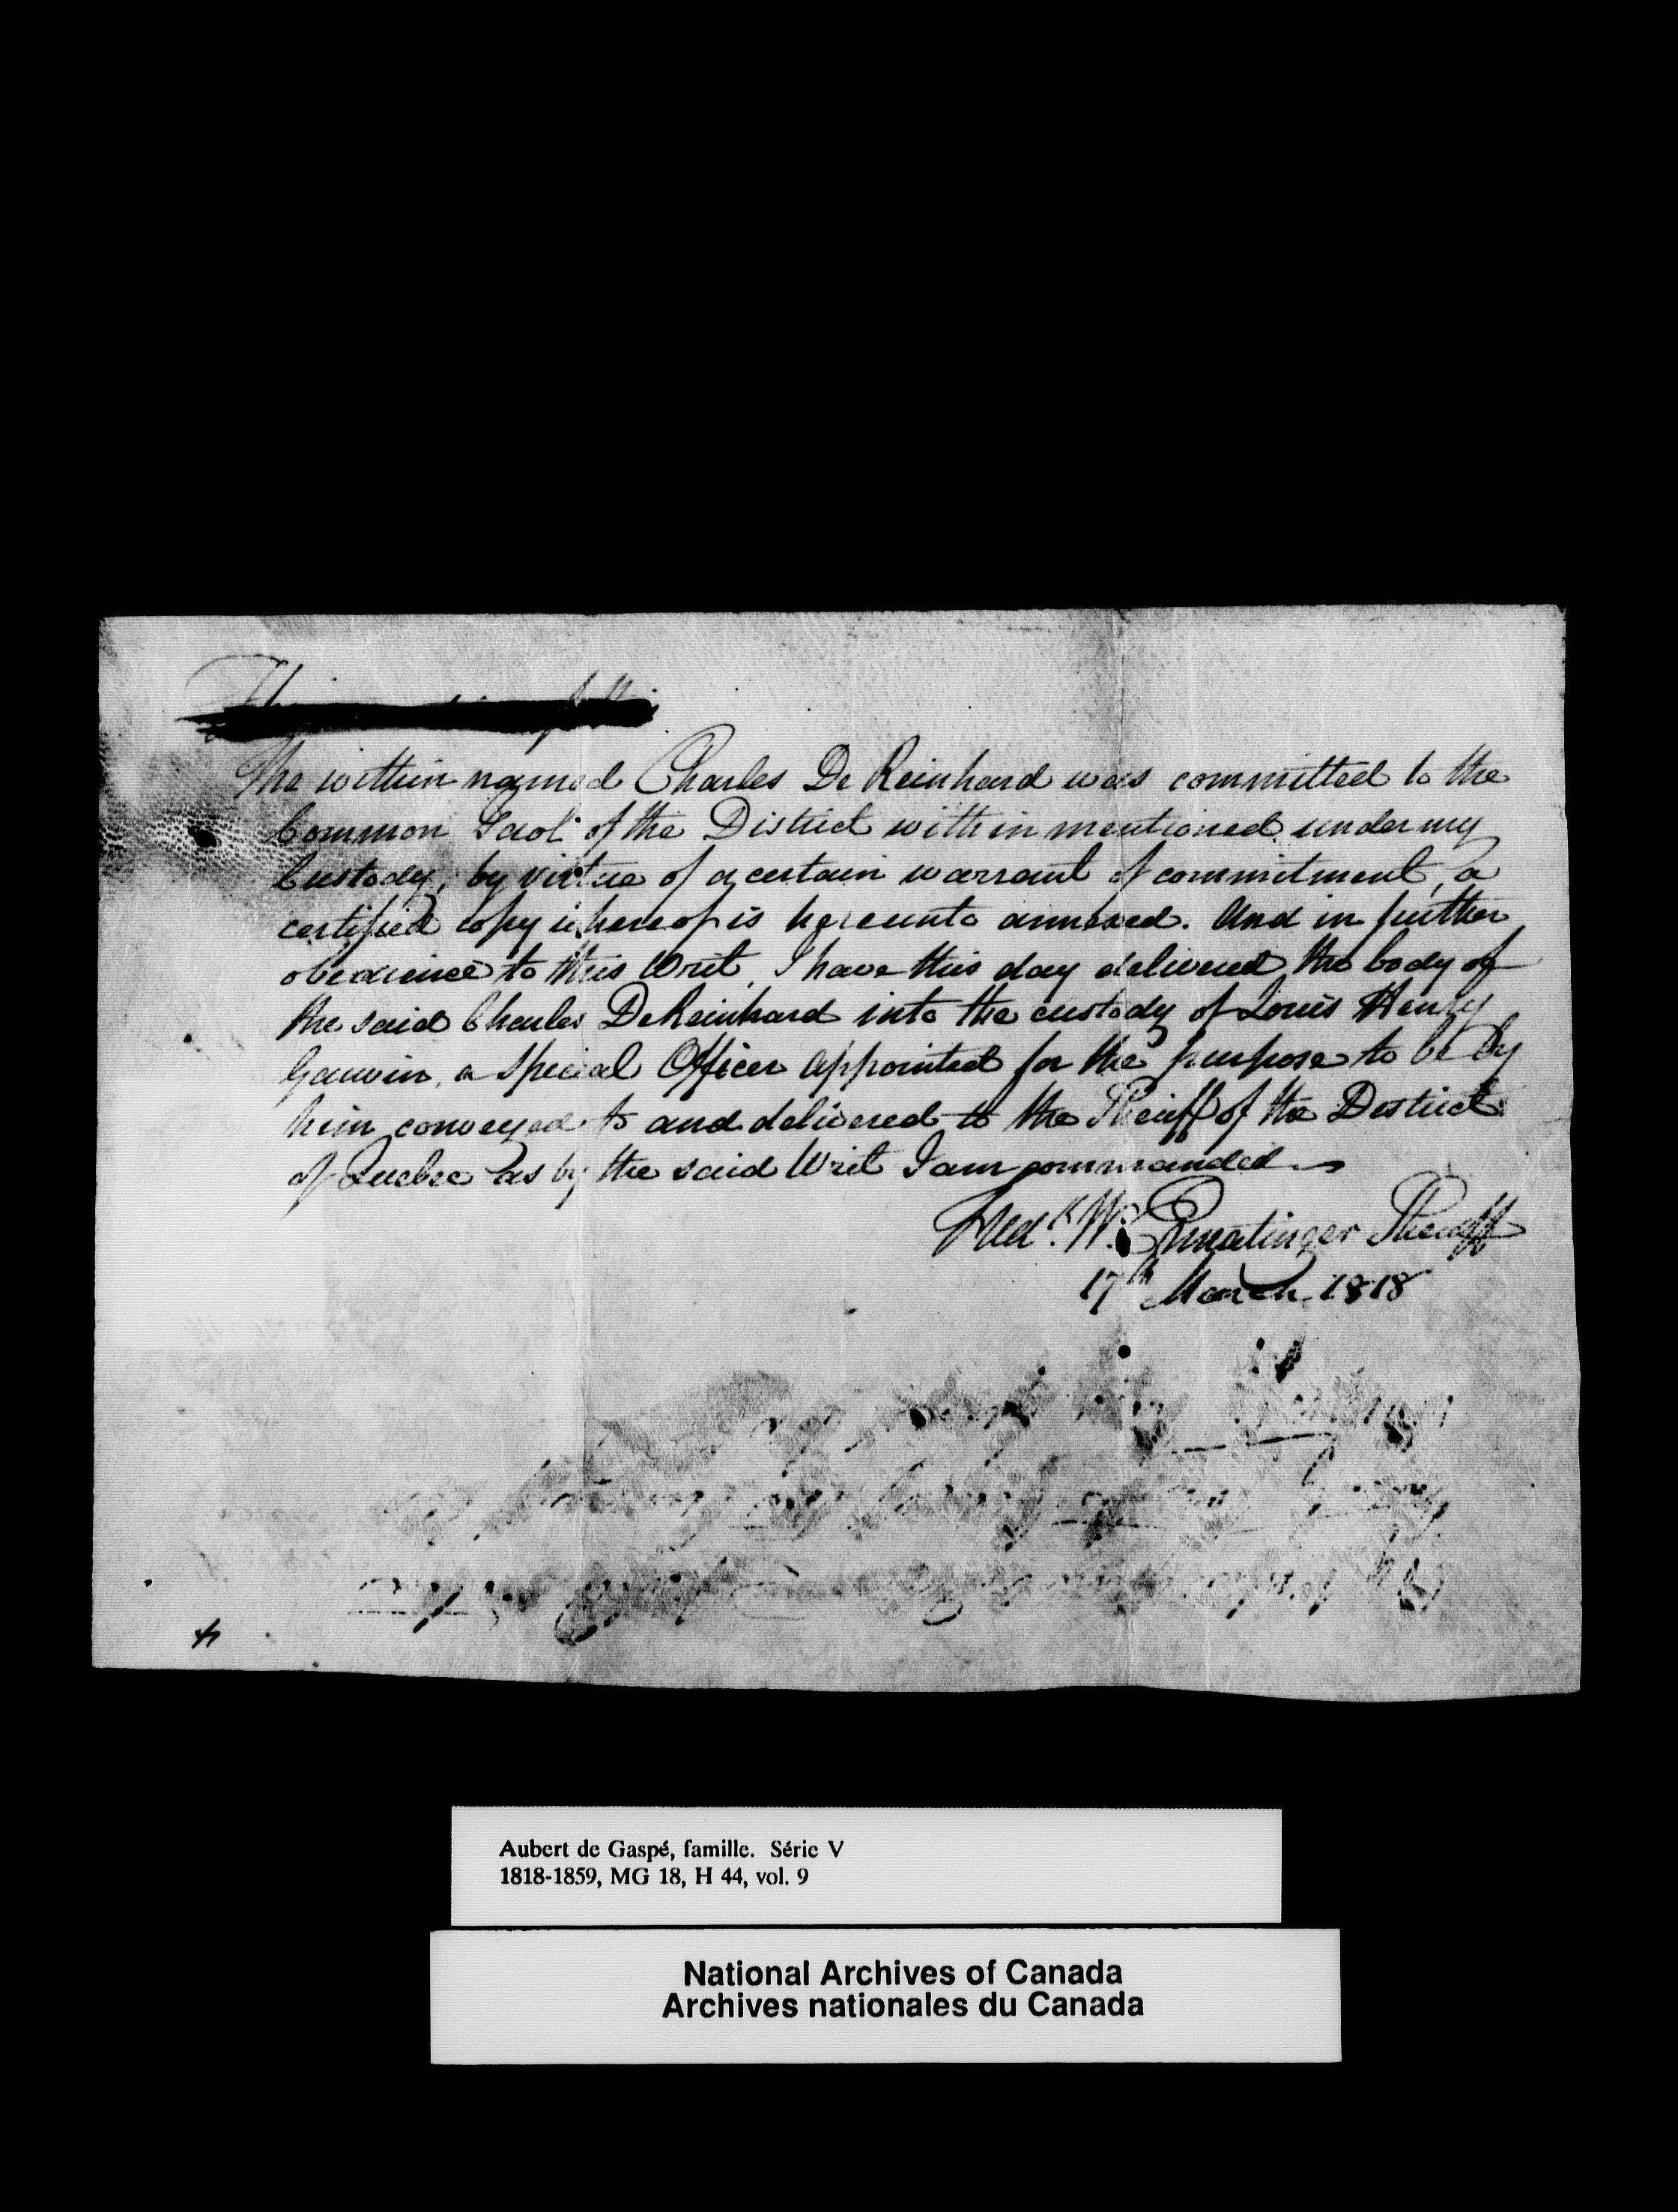 The within named Charles De Reinhard was committed to the
Common Gaol of the District within mentioned under my
Custody, by virtue of a certain warrant of commitment, a
certified copy whereof is hereunto annexed. And in further
obedience to this Writ, I have this day delivered the body of
the said Charles De Reinhard into the custody of Louis Henry
Gauvin, a Special Officer appointed for the purpose to be by
him conveyed to and delivered to the Sheriff of the District
of Quebec as by the said Writ I am commanded
Fred.k W. Ermatinger Sheriff
17th March 1818
Aubert de Gaspé, famille. Série V
1818-1859, MG 18, H 44, vol. 9
National Archives of Canada
Archives nationales du Canada